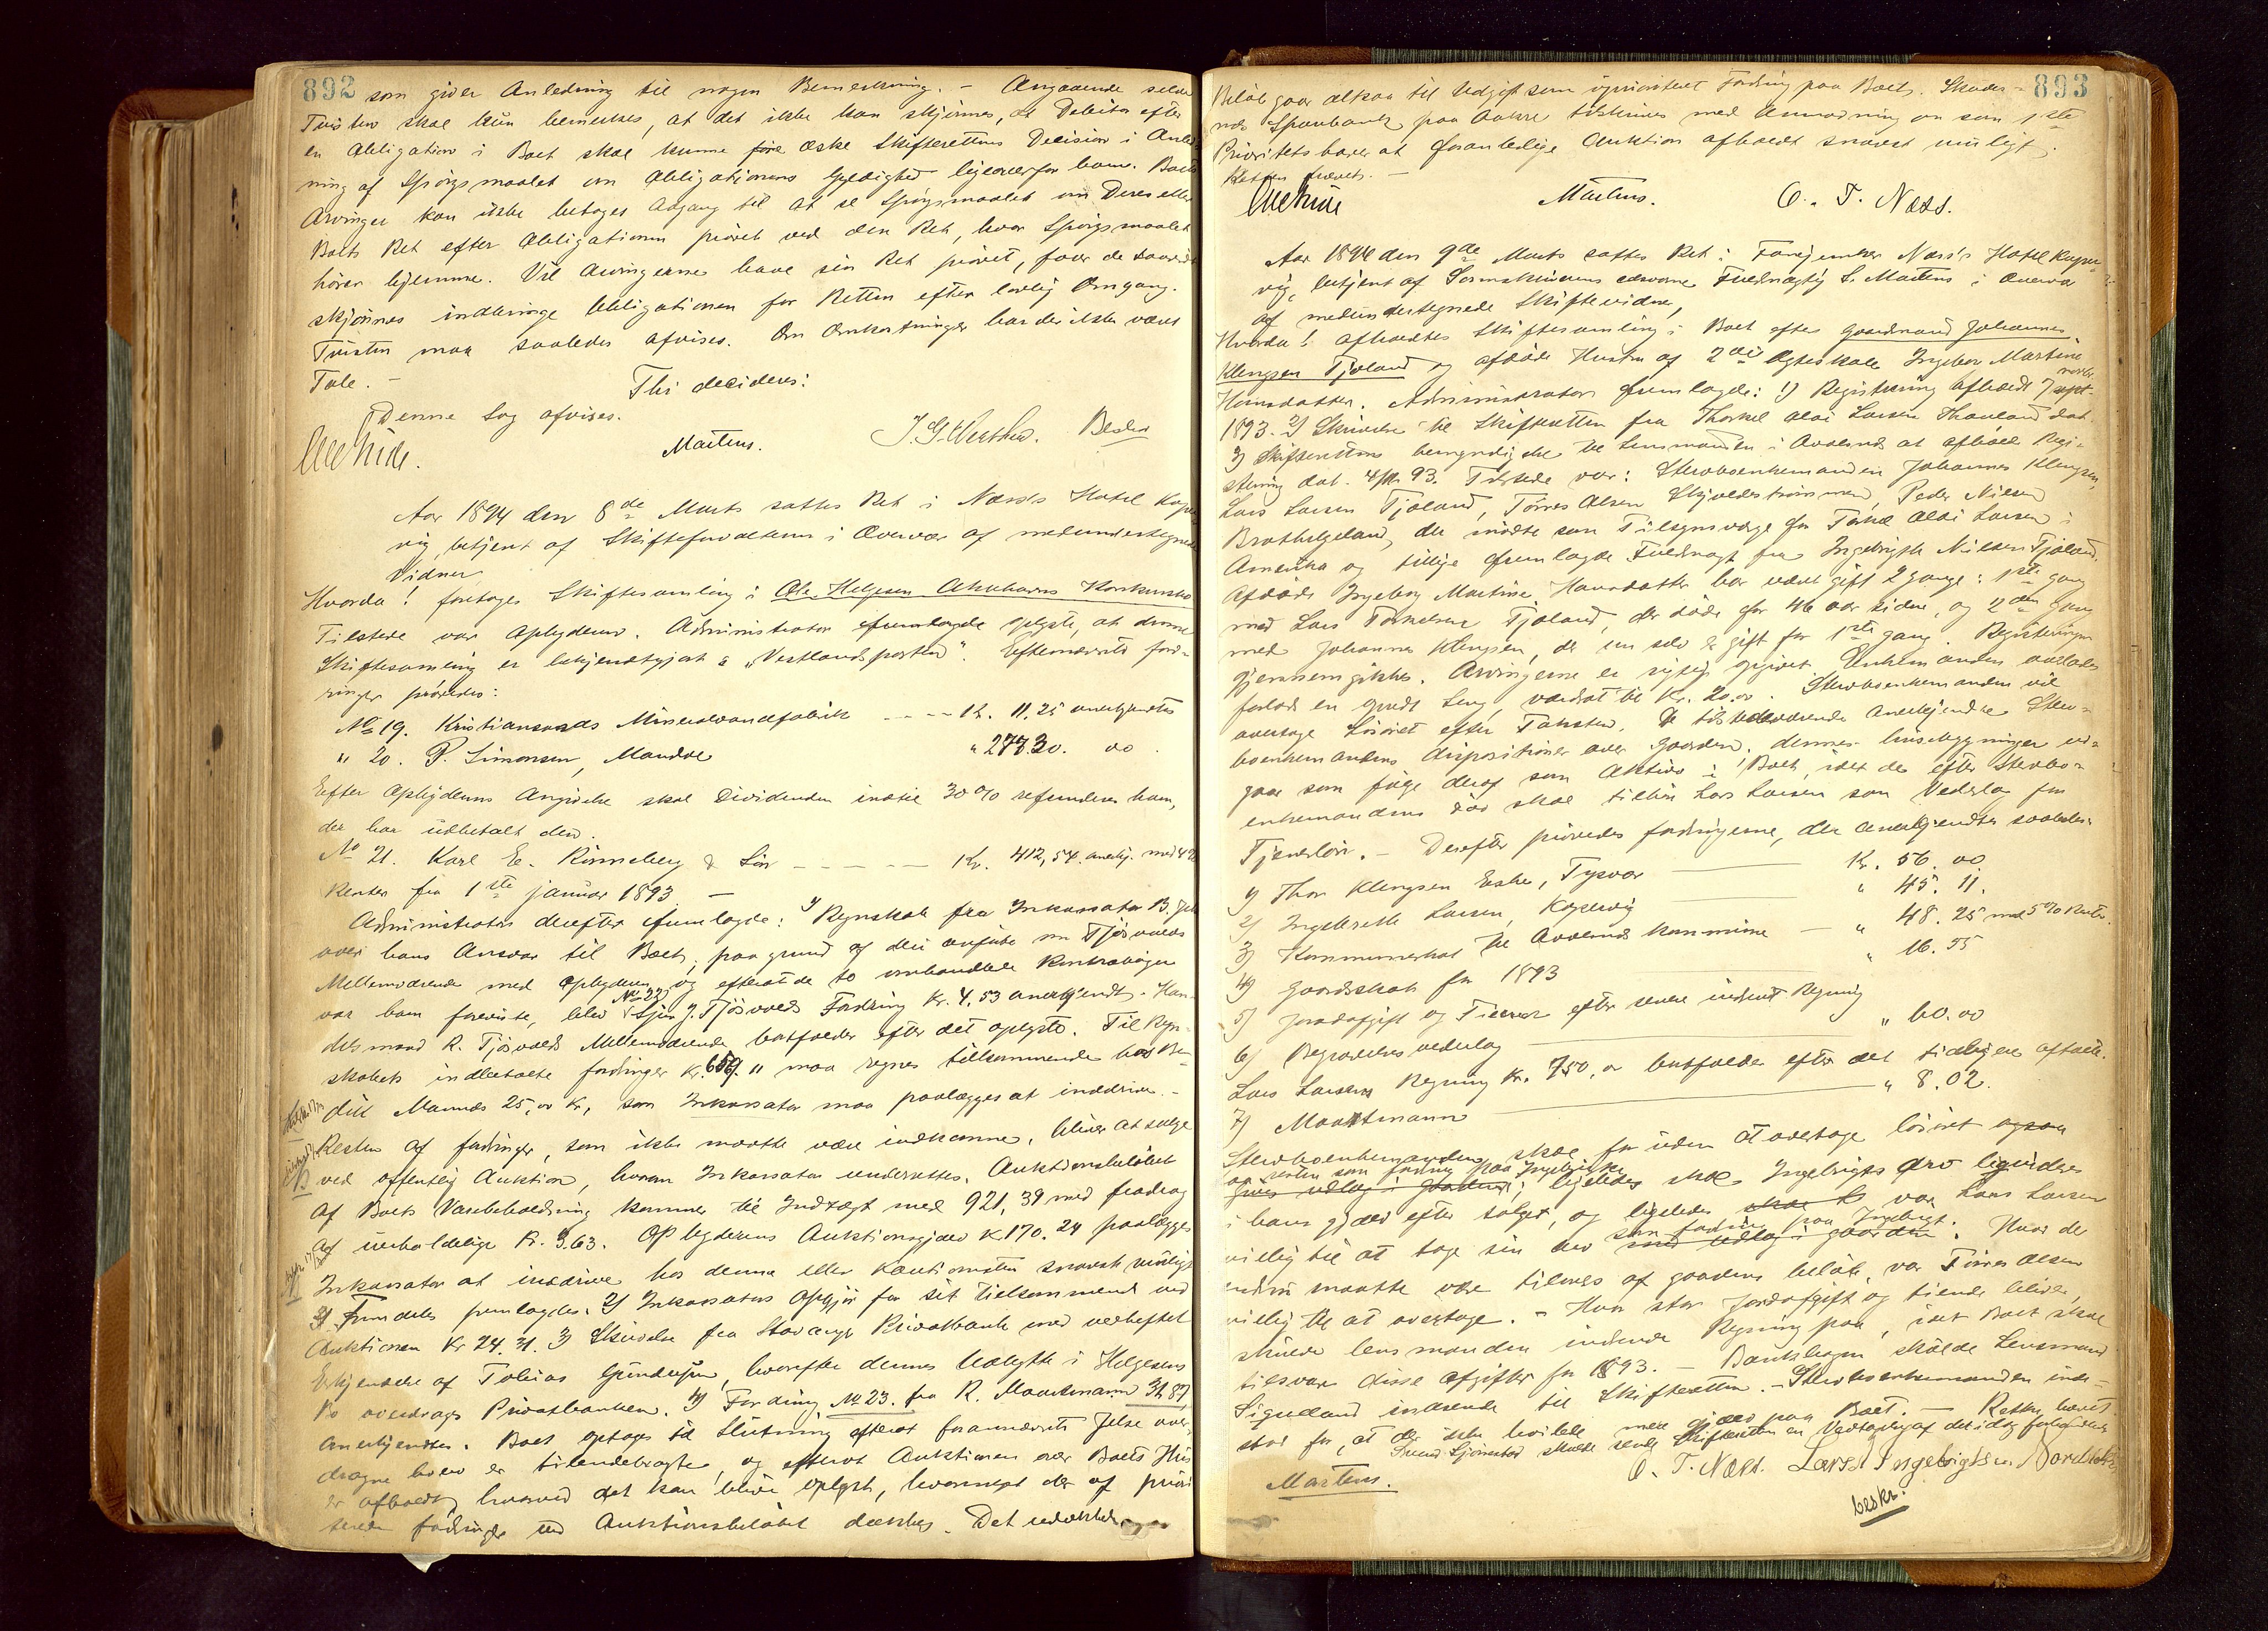 892
som giver Anledning til nogen Bemerkning. – Angaaende selve
Tvisten skal kun bemerkes, at det ikke kan skjönnes, at Debitor efter
en Obligation i Boet skal kunne æske Skifterettens Decision i Anled-
ning af Spörgsmaalet om Obligationens Gyldighed ligeoverfor ham. Boets
Arvinger kan ikke betages Adgang til at se Spörgsmaalet om Deres eller
Boets Ret efter Obligationen prövet ved den Ret, hvor Spörgsmaalet
hörer hjemme. Vil Arvingerne have sin Ret prövet, faar de
skjönnes indbringe Obligationen for Retten efter lovlig Omgang.
Tvisten maa saaledes afvises. Om Omkostninger har der ikke været
Tale. –
Thi decideres:
Denne Sag afvises.
Martens. Beskr
Aar 1894 den 8de Marts sattes Ret i Næss's Hotel Koper-
vig, betjent af Skifteforvalteren i Overvær af medundertegnede
Vidner
Hvorda! foretoges Skiftesamling i Ole Helgesen Konkursbo
Tilstede var Opbyderen. Administrator oplyste, at denne
Skiftesamling er bekjendtgjort i „Vestlandsposten". Efternævnte ford-
ringer prövedes:
No 19. Kristianssands Mineralvandfabrik – – – Kr. 11,25 anerkjendtes
„ 20. P. Simonsen, Mandal „ 277.30. oo.
Efter Opbyderens Angivelse skal Dividenden indtil 30% refunderes ham,
der har udbetalt den.
No 21. Karl E. Rönneberg & Sön – – – – Kr. 412,54. anerkj. med 4%
Renter fra 1ste januar 1893 –
Administrator derefter fremlagde: 1) Regnskab fra Inkassator B.
over hans Ansvar til Boet, paa grund af det anförte om Tjösvolds
Mellemværende med Opbyderen og efterat de to omhandlede Kontraböger
var ham foreviste, blev No 22 J. Tjösvolds Fordring Kr. 4,53 anerkjendt. Han-
delsmand R. Tjösvolds Mellemværende bortfalder efter det oplyste. Til Regn-
skabets indbetalte fordringer Kr. maa regnes tilkommende hos
Mannes 25,oo Kr, som Inkassator maa paalægges at inddrive. –
Resten af fordringer, som ikke maatte være indkomne, bliver at sælge
ved offentlig Auktion, hvorom Inkassator underrettes. Auktionsbelöbet
af Boets Varebeholdning kommer til Indtægt med 921,39 med fradrag
af uerholdelige Kr. 3.63. Opbyderens Auktionsgjæld Kr 170.24 paalægges
Inkassator at inddrive hos denne eller Kautionisten snarest muligt
fremlagdes. 2) Inkassators Opgjör for sit Tilkommende ved
Auktionen Kr 24.31. 3) Skrivelse fra Stavanger Privatbank med vedheftet
Erkjendelse af Tobias Gundersen, hvorefter dennes Udbytte i Helgesens
Bo overdrages Privatbanken. 4) Fordring No 23. fra R. Maartmann 31.87,
anerkjendtes. Boet optages til Slutning efterat forannævnte
dragne hverv er tilendebragte, og efterat Auktionen over Boets Hus
er afholdt, hvorved det kan blive oplyst, hvormeget der af priori-
terede fordringer ved Auktionsbelöbet dækkes. Det udækkede
893
Belöb gaar altsaa til Udgift som uprioriteret Fordring paa Boet. Skudes-
næs Sparebank paa Aakre tilskrives med Anmodning om som 1ste
Prioritetshaver at foranledige Auktion afholdt snarest muligt.
Retten hævet. –
Martens. O. T. Næss.
Aar 1894 den 9de Marts sattes Ret i Næss's Hotel Koper-
vig, betjent af Sorenskriverens edsvorne Fuldmægtig S. Martens i Overvær
af medundertegnede Skiftevidner,
Hvorda! afholdtes Skiftesamling i Boet efter Gaardmand Johannes
Klengsen Tjoland og afdöde Hustru af 2det Ægteskab Ingebor Martine
Hansdatter. Administrator fremlagde: 1) Registrering afholdt 7
1893. 2) Skrivelse til Skifteretten fra Thorkel Olai Larsen dat.
3) Skifterettens bemyndigelse til Lensmanden i Avalsnæs at afholde Regi-
strering dat. 93. Tilstede var: Sterboenkemanden Johannes Klengsen,
Lars Larsen Tjoland, Törres Olsen Peder Nilsen
Brathelgeland, der mödte som Tilsynsværge for Torkel Olai Larsen i
Amerika og tillige fremlagde Fuldmagt fra Ingebrigth Nilsen Tjoland.
Afdöde Ingeborg Martine Hansdatter har været gift 2 gange: 1ste gang
med Lars Torkelsen Tjoland, der döde for 46 aar siden, og 2den gang
med Johannes Klengsen, der nu selv er gift for 1ste gang. Registreringen
gjennemgikkes. Arvingerne er rigtig opgivet. Enkemanden
forlods en opredt Seng, værdsat til Kr. 20.oo. Sterboenkemanden vil
overtage Lösöret efter Taksten. De tilstedeværende anerkjendte Sterv-
boenkemandens dispositioner over gaarden, dennes husebygninger ud-
gaar som fölge deraf som Aktiva i Boet, idet de efter Sterbo-
enkemandens död skal tilhöre Lars Larsen som Vederlag for
Tjenerlön. – Derefter prövedes fordringerne, der anerkjendtes saaledes:
1) Thor Klengsen Eske, Tysvær Kr. 56.oo
2) Ingebreth Larsen, Kopervig „ 45.11.
3) Kommuneskat til Avalsnæs kommune – „ 48.25 med 5% Renter.
4) Gaardsskat for 1893 „ 16.55
5) Jordafgift og Tiende efter senere indsendt Regning
6) Begravelsesvederlag „ 60.oo
Lars Larsens Regning Kr. 750,oo bortfalder efter det tidligere aftalte.
7) Maartmann „ 8.02.
Sterboenkemanden skal for uden at overtage lösöret
og resten som fordring paa Ingebrigt; ligeledes skal Ingebrigts Arv liquideres
i hans gjæld efter salget, og ligeledes var Lars Larsen
villig til at tage sin Arv som fordring paa Ingebrigt. Hvad der
endnu maatte være tilovers af gaardens belöb, var Törres Olsen
villig til at overtage. – Hvor stor Jordafgift og tiende bliver,
skulde lensmanden indsende Regning paa, idet Boet skal
tilsvare disse afgifter for 1893. – Bankbogen skulde Lensmand
indsende til Skifteretten. – Sterboenkemanden inde-
stod for, at der ikke hvilede mere gjæld paa Boet. – Retten hævet.
skulde sende Skifteretten en Vedtagelse af det idag forhandlede
Martens. O. T. Næss. Lars Ingebrigtsen
beskr.